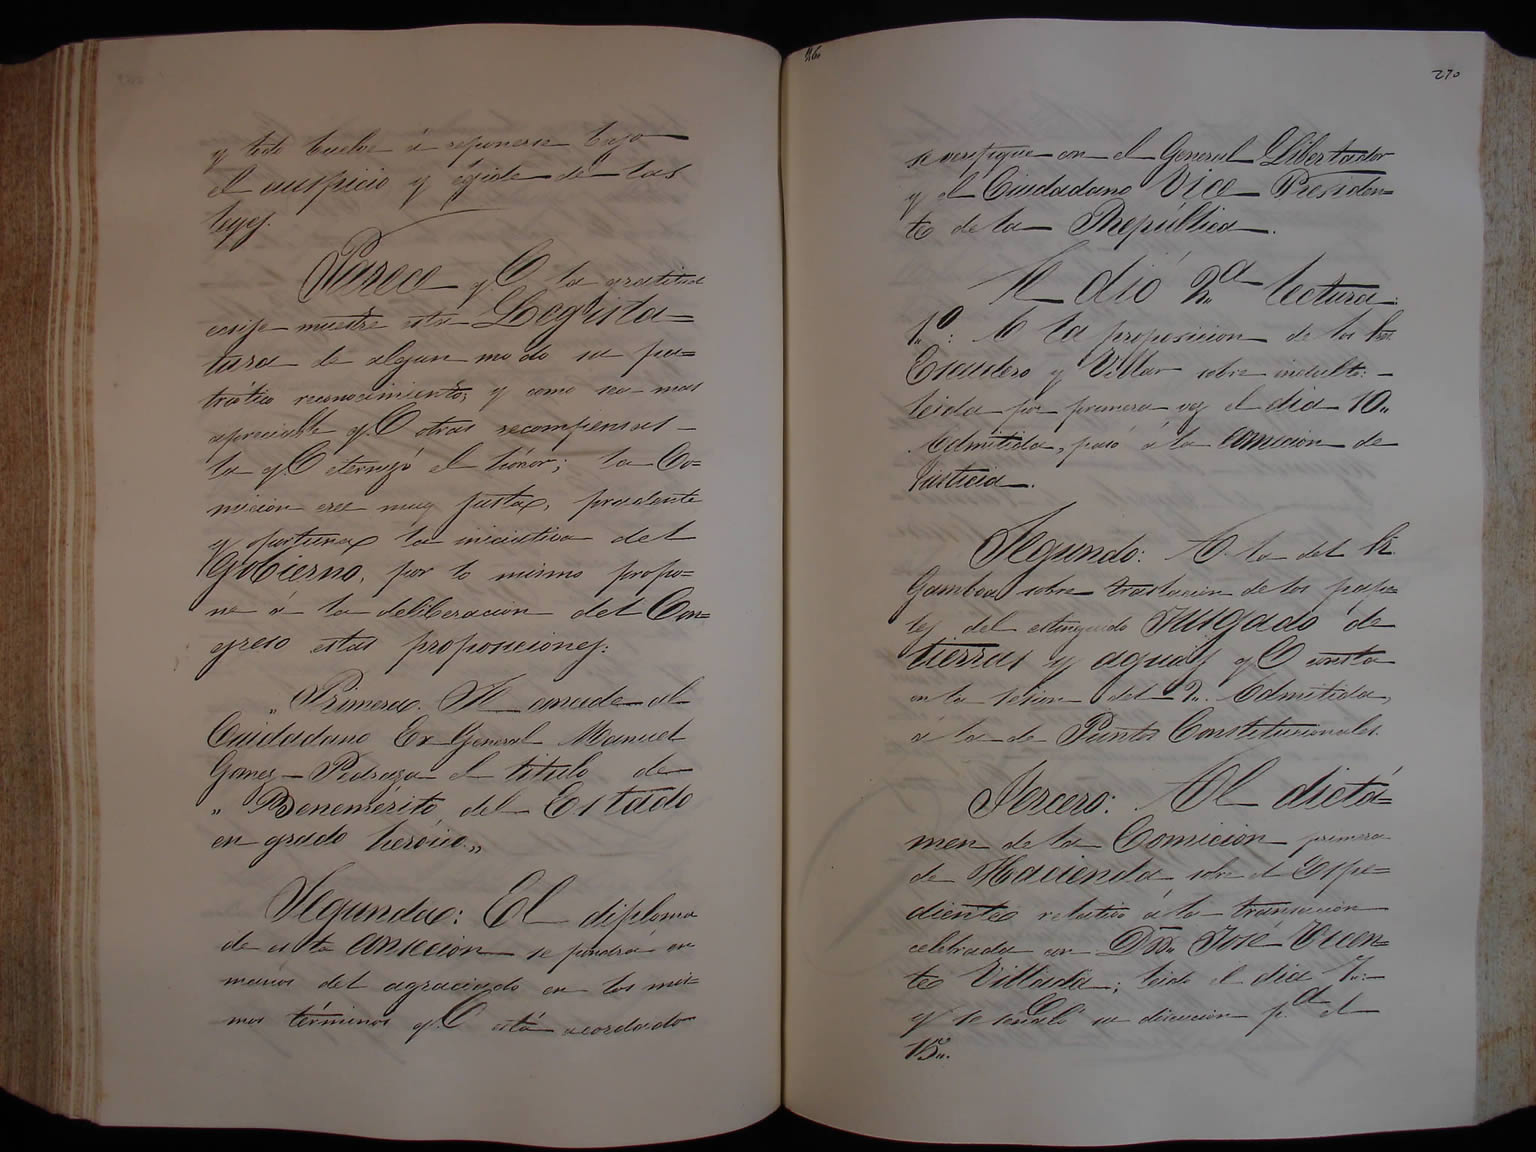 y todo buelve á reponerse bajo
el auspicio y égide de las
leyes.
Parece qe. la gratitud
exije muestre esta Legisla=
tura de algun modo su pa=
triótico reconocimiento; y como sea mas
apreciable qe. otras recompensas
la qe. eternizó el honor; la Co=
micion cree muy justa, prudente
y oportuna la iniciativa del
Gobierno, por lo mismo propo=
ne á la deliberacion del Con=
greso estas proposiciones:
„Primera. Se concede al
Ciudadano Ex General Manuel
Gomez Pedraza el titulo de
„Benemérito del Estado
en grado heroico.„
Segunda: El diploma
de esta concecion se pondrá en
manos del agraciado en los mis=
mos términos qe. está acordado
46
270
se verifique con el General Libertador
y el Ciudadano Vice Presiden=
te de la República.
Se dió 2a. lectura:
1o.: A la proposicion de los Srs.
Escudero y Villar sobre indulto:
leida por primera vez el dia 10.
Admitida, pasó á la comicion de
Justicia.
Segundo: A la del Sr.
Gamboa sobre traslacion de los pape=
les del estinguido Jusgado de
tierras y aguas qe. consta
en la sesion del 7. Admitida,
á la de Puntos Constitucionales.
Tercero: Al dictá=
men de la Comicion primera
de Hacienda sobre el Espe=
diente relativo á la transacion
celebrada con Dn. José Vicen=
te Villada; leido el dia 7.
y se señaló su discucion pa. el
15.